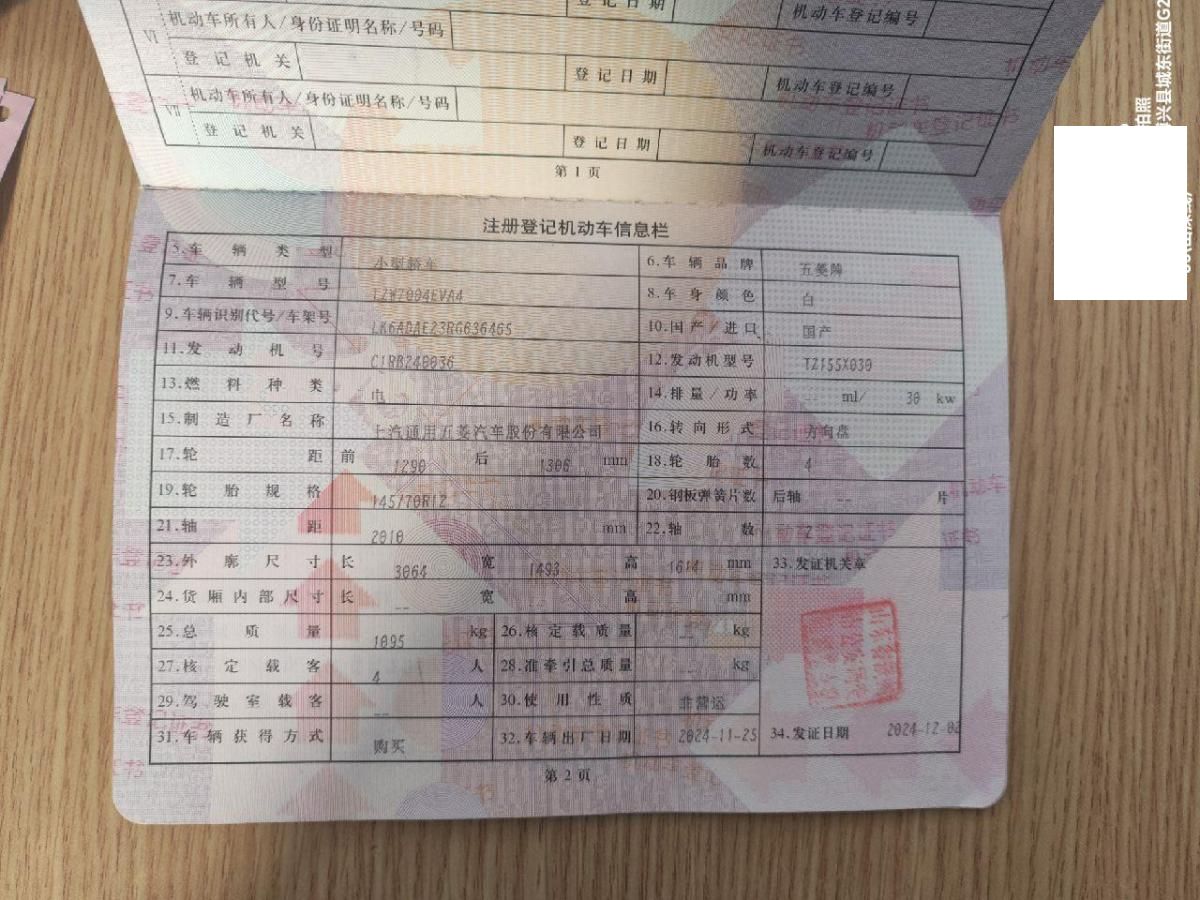 登记日期 机动车登记编号
Ⅵ 机动车所有人/身份证明名称/号码
登记机关 登记日期 机动车登记编号
Ⅶ 机动车所有人/身份证明名称/号码
登记机关 登记日期 机动车登记编号
第1页
注册登记机动车信息栏
5.车辆类型 小型轿车 6.车辆品牌 五菱牌
7.车辆型号 LZW7004EVA4 8.车身颜色 白
9.车辆识别代号/车架号 LK6ADAE23RG636465 10.国产/进口 国产
11.发动机号 C1RB240036 12.发动机型号 TZ155X030
13.燃料种类 电 14.排量/功率 -- ml/ 30 kw
15.制造厂名称 上汽通用五菱汽车股份有限公司 16.转向形式 方向盘
17.轮距 前 1290 后 1306 mm 18.轮胎数 4
19.轮胎规格 145/70R12 20.钢板弹簧片数 后轴 -- 片
21.轴距 2010 mm 22.轴数 2
23.外廓尺寸 长 3064 宽 1493 高 1614 mm 33.发证机关章
24.货厢内部尺寸 长 -- 宽 高 mm
25.总质量 1095 kg 26.核定载质量 kg
27.核定载客 4 人 28.准牵引总质量 kg
29.驾驶室载客 -- 人 30.使用性质 非营运
31.车辆获得方式 购买 32.车辆出厂日期 2024-11-25 34.发证日期 2024-12-02
第2页
拍照
兴县城东街道G2